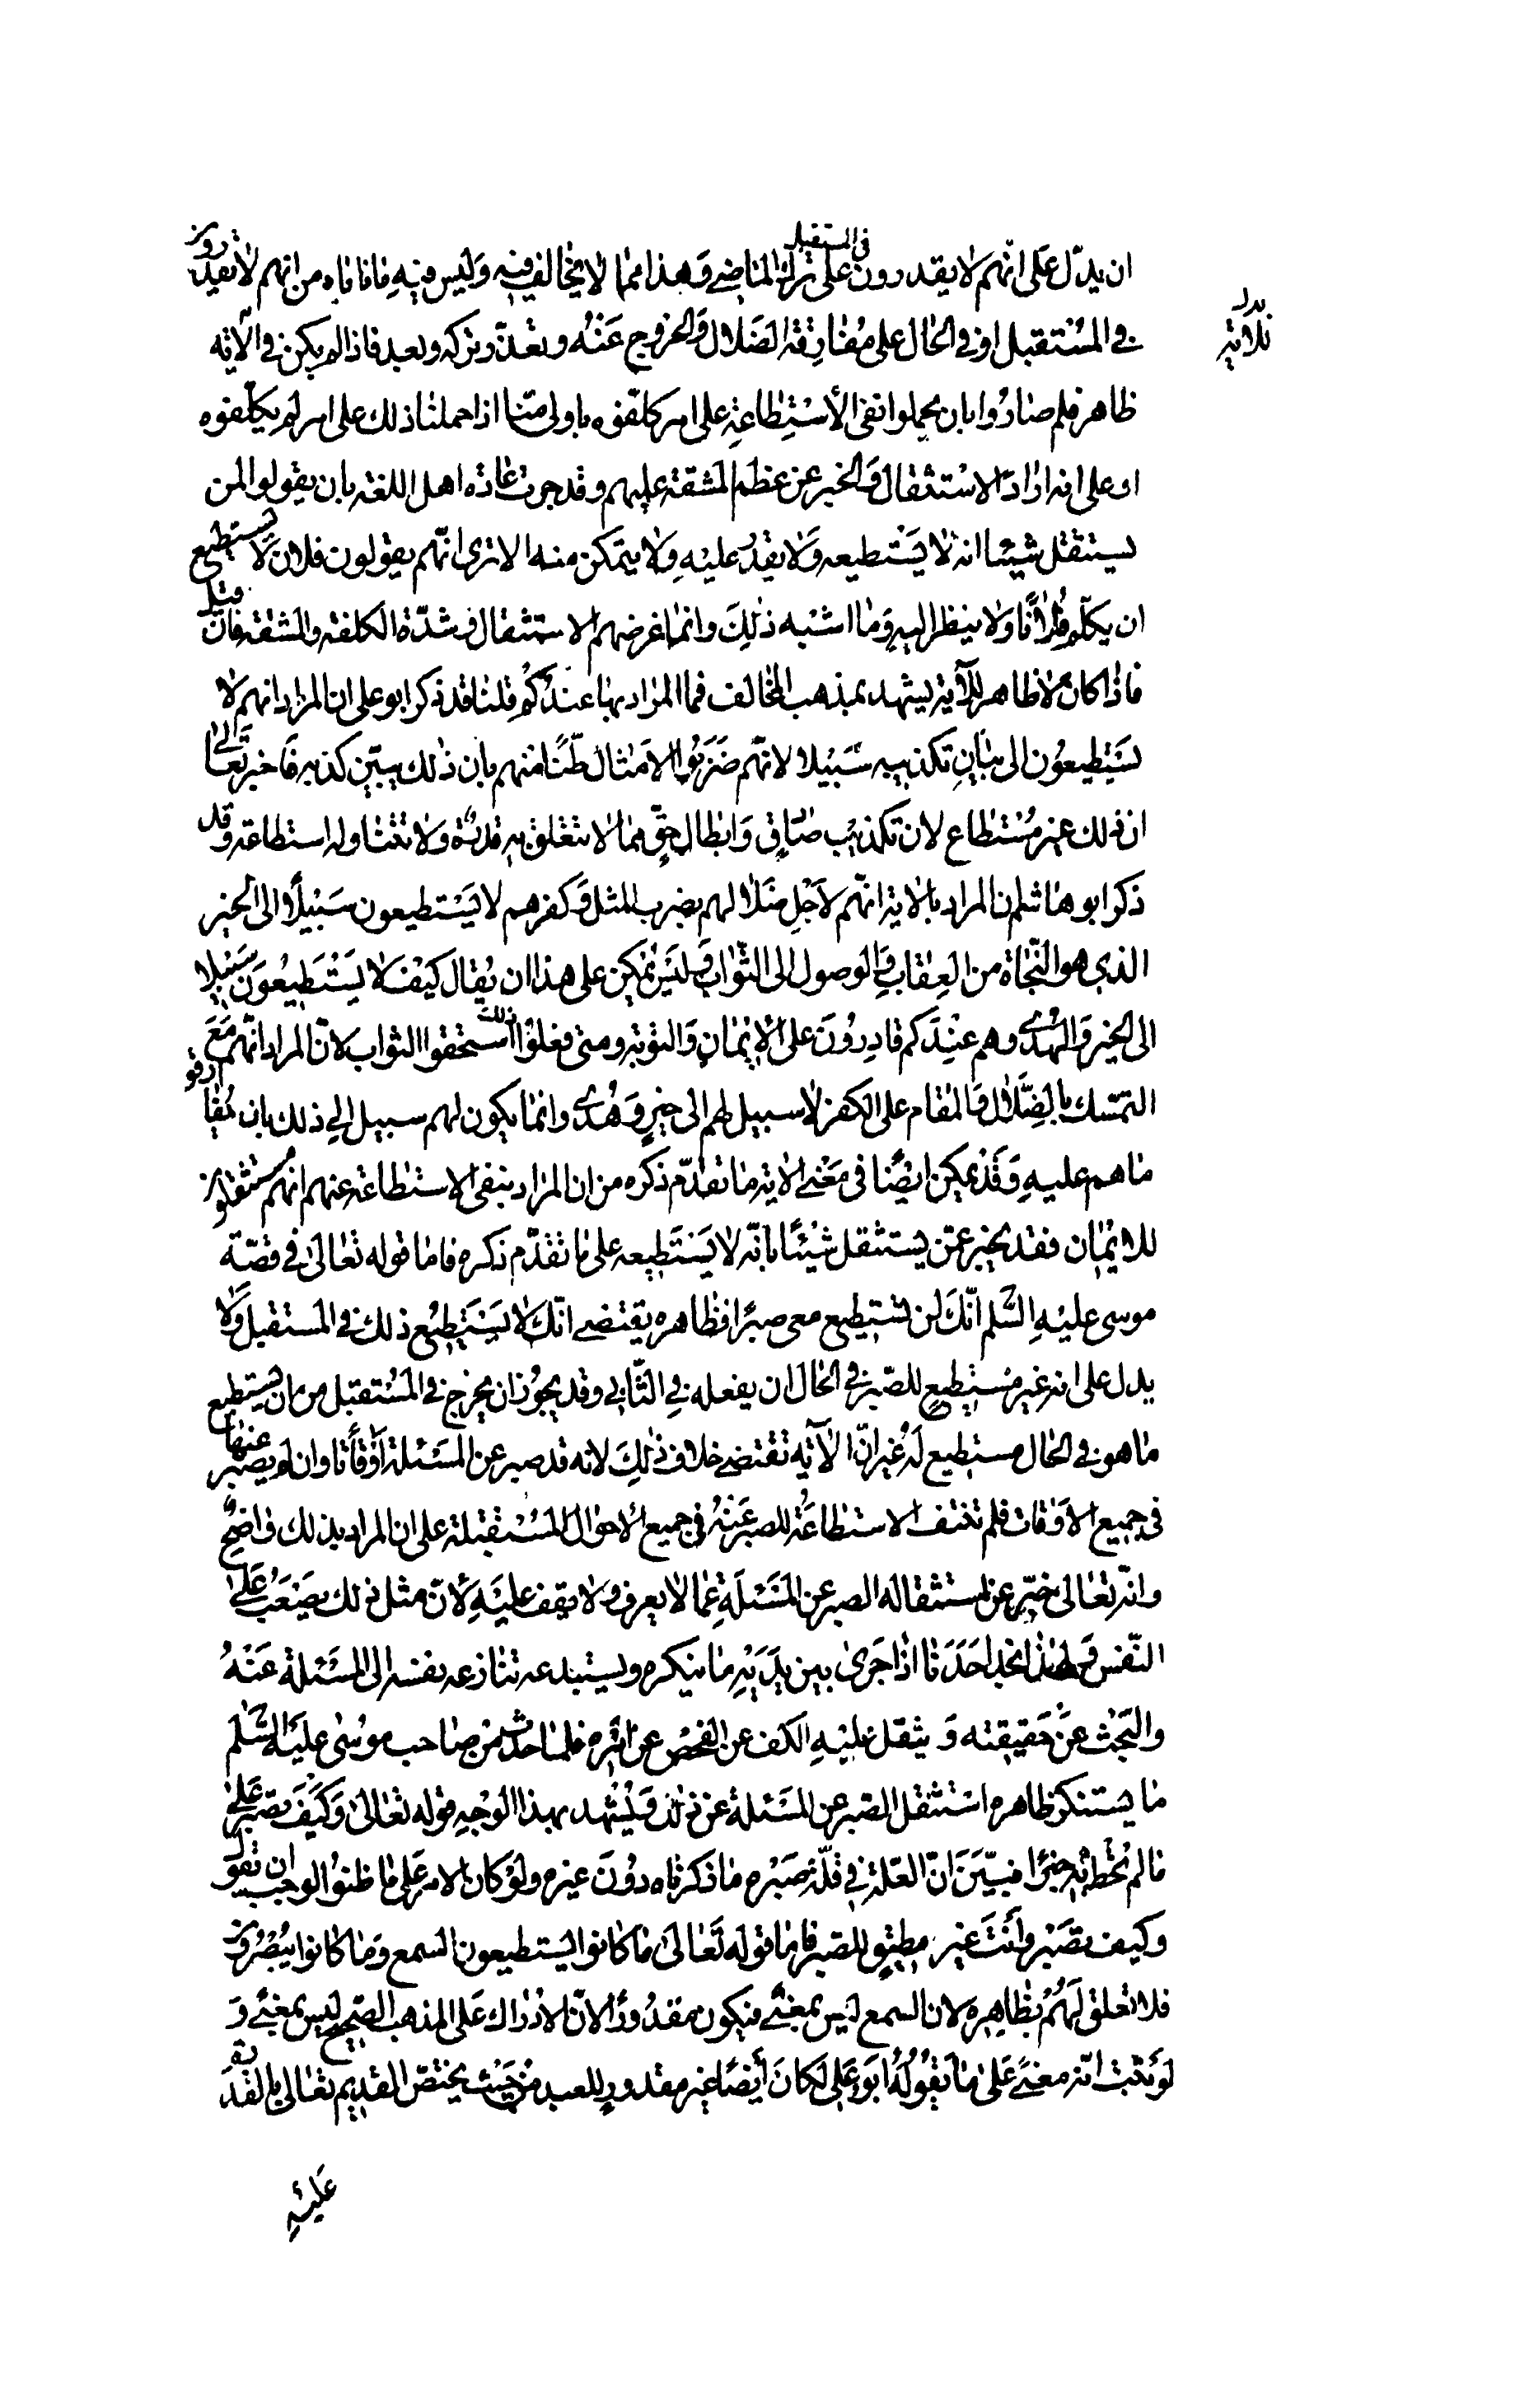 ان يدلّ على انّهم لا يقدرون فى المستقبل على ترك الماضى وهذا ممّا لا يخالف فيه وليس فيه ما اباه من انهم لا يقدرون
فى المستقبل او فى الحال على مفارقة الضلال والخروج عنه وتعذّر تركه وبعد فاذا لم يكن فى الآيه
ظاهر فلم صاروا بان يحملوا نفى الاستطاعة على امر كلّفوه باولى منّا اذا حملنا ذلك على امر لم يكلّفوه
او على انه اراد الاستثقال والخبر عن عظم المشقة عليهم وقد جرت عادة اهل اللغة بان يقولوا لمن
يستثقل شيئا انه لا يستطيعه ولا يقدر عليه ولا يتمكن منه الا ترى انّهم يقولون فلان لا يستطيع
ان يكلّم فلانا ولا ينظر اليه وما اشبه ذلك وانما غرضهم الاستثقال وشدّة الكلفة والمشقة فان قيل
فاذا كان لا ظاهر للآية يشهد بمذهب المخالف فما المراد بها عندكم قلنا قد ذكر ابو على ان المراد انهم لا
يستطيعون الى بيان تكذيبه سبيلا لانّهم ضربوا الامثال ظنّا منهم بان ذلك يبيّن كذبه فاخبر تعالى
ان ذلك غير مستطاع لان تكذيب صادق وابطال حقّ ممّا لا تتعلق به قدرة ولا تتناوله استطاعة وقد
ذكر ابو هاشم ان المراد بالاية انّهم لاجل ضلالهم بضرب المثل وكفرهم لا يستطيعون سبيلا الى الخير
الذى هو النّجاة من العقاب والوصول الى الثواب وليس يمكن على هذا ان يقال كيف لا يستطيعون سبيلا
الى الخير والهدى وهم عندكم قادرون على الايمان والتوبة ومتى فعلوا ذلك استحقوا الثواب لانّ المراد انّهم مع
التمسّك بالضّلال والمقام على الكفر لا سبيل لهم الى خير وهدى وانما يكون لهم سبيل الى ذلك بان يفارقوا
ما هم عليه وقد يمكن ايضا فى معنى الاية ما تقدّم ذكره من ان المراد بنفى الاستطاعة عنهم انهم مستثقلون
للايمان فقد يخبر عمّن يستثقل شيئا بانّه لا يستطيعه على ما تقدّم ذكره فاما قوله تعالى فى قصّة
موسى عليه السّلم انّك لن تستطيع معى صبرا فظاهره يقتضى انّك لا تستطيع ذلك فى المستقبل ولا
يدل على انه غير مستطيع للصّبر فى الحال ان يفعله فى الثّانى وقد يجوز ان يخرج فى المستقبل من ان يستطيع
ما هو فى الحال مستطيع له غير انّ الآيه تقتضى خلاف ذلك لانه قد صبر عن المسئلة اوقاتا وان لم يصبر عنها
فى جميع الاوقات فلم تنتف الاستطاعة للصبر عنه فى جميع الاحوال المستقبلة على ان المراد بذلك واضح
وانّه تعالى خبّر عن استثقاله الصبر عن المسئلة عما لا يعرف ولا يقف عليه لانّ مثل ذلك يصعب على
النّفس ولهذا نجد احدنا اذا جرى بين يديه ما ينكره ويستبدعه تنازعه نفسه الى المسئلة عنه
والبحث عن حقيقته ويثقل عليه الكف عن الفحص عن امره فلما حدث من صاحب موسى عليه السّلم
ما يستنكر ظاهره استثقل الصبر عن المسئلة عن ذلك ويشهد بهذا الوجه قوله تعالى وكيف تصبر على
ما لم تحط به خبرا فبيّن انّ العلّة فى قلّة صبره ما ذكرناه دون غيره ولو كان الامر على ما ظنوا لوجب ان تقول
وكيف تصبر وانت غير مطيق للصّبر فاما قوله تعالى ما كانوا يستطيعون السمع وما كانوا يبصرون
فلا تعلق لهم بظاهره لان السمع ليس بمعنى فيكون مقدورا لانّ الادراك على المذهب الصّحيح ليس بمعنى و
لو ثبت انّه معنى على ما يقوله ابو على لكان أيضا غير مقدور للعبد من حيث يختصّ القديم تعالى بالقدرة
عليه